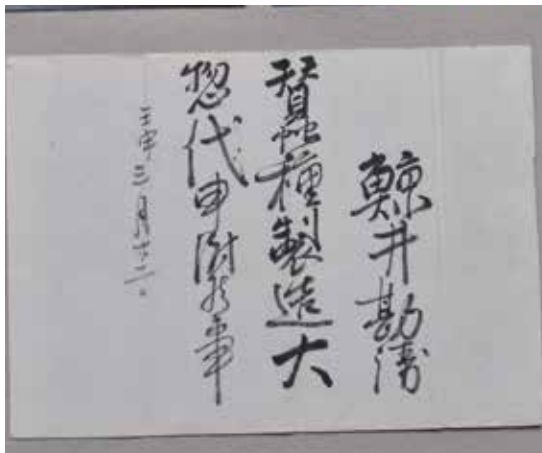 鯨井勘衛
蠶種製造大
惣代申附候事
壬申三月十二日